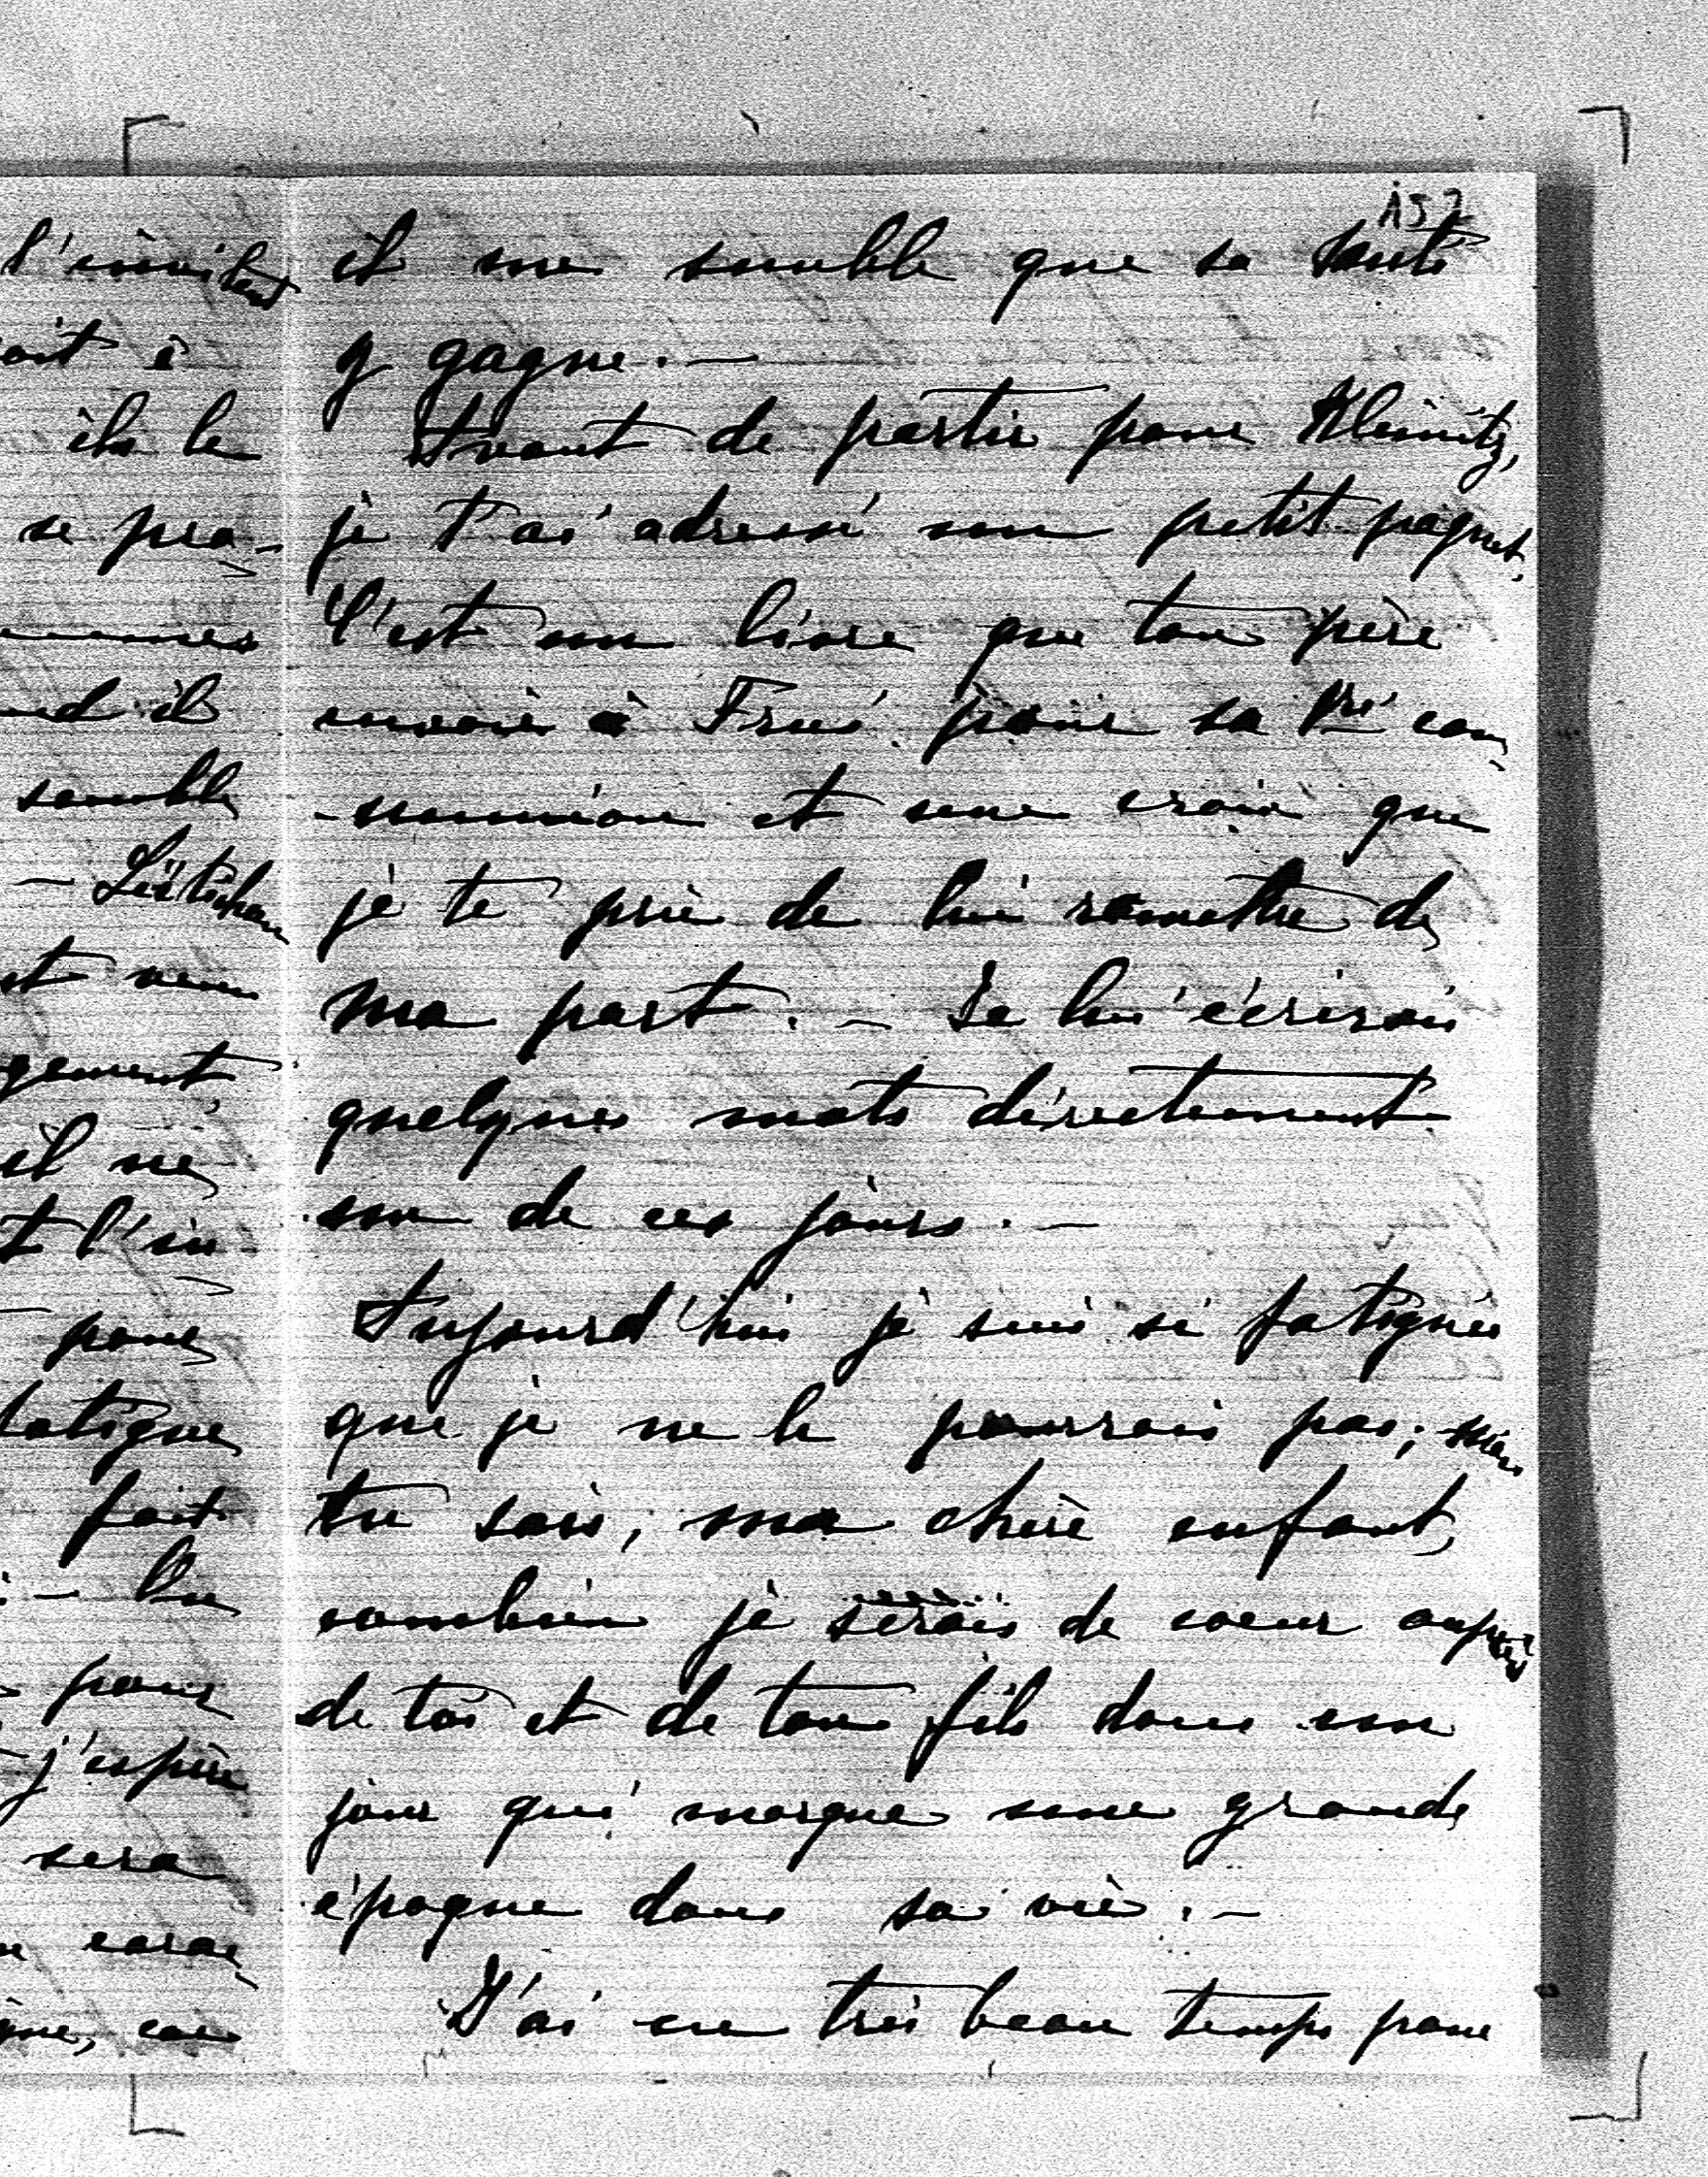 l'invitent
ils le
se pro-
nd il
semble
est venu
gement
il ne
t l'in-
pour
fatigue
fait
pour
j'espère
sera
157
il me semble que sa santé
y gagne. —
Avant de partir pour Kleinitz,
je t'ai adressé un petit paquet.
C'est un livre que ton père
envoie à Fréd. pour sa 1re com
-munion et une croix que
je te prie de lui remettre de
ma part. — Je lui écrirai
quelques mots directement
un de ces jours. —
Aujourd'hui je suis si fatiguée
que je ne le pourrais pas; mais
tu sais, ma chère enfant,
combien je serais de coeur auprès
de toi et de ton fils dans un
jour qui marque une grande
époque dans sa vie. —
J'ai eu très beau temps pour